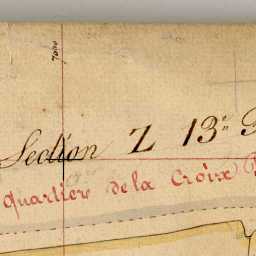 7000
Section Z 13ⁿ
quartier de la Croix